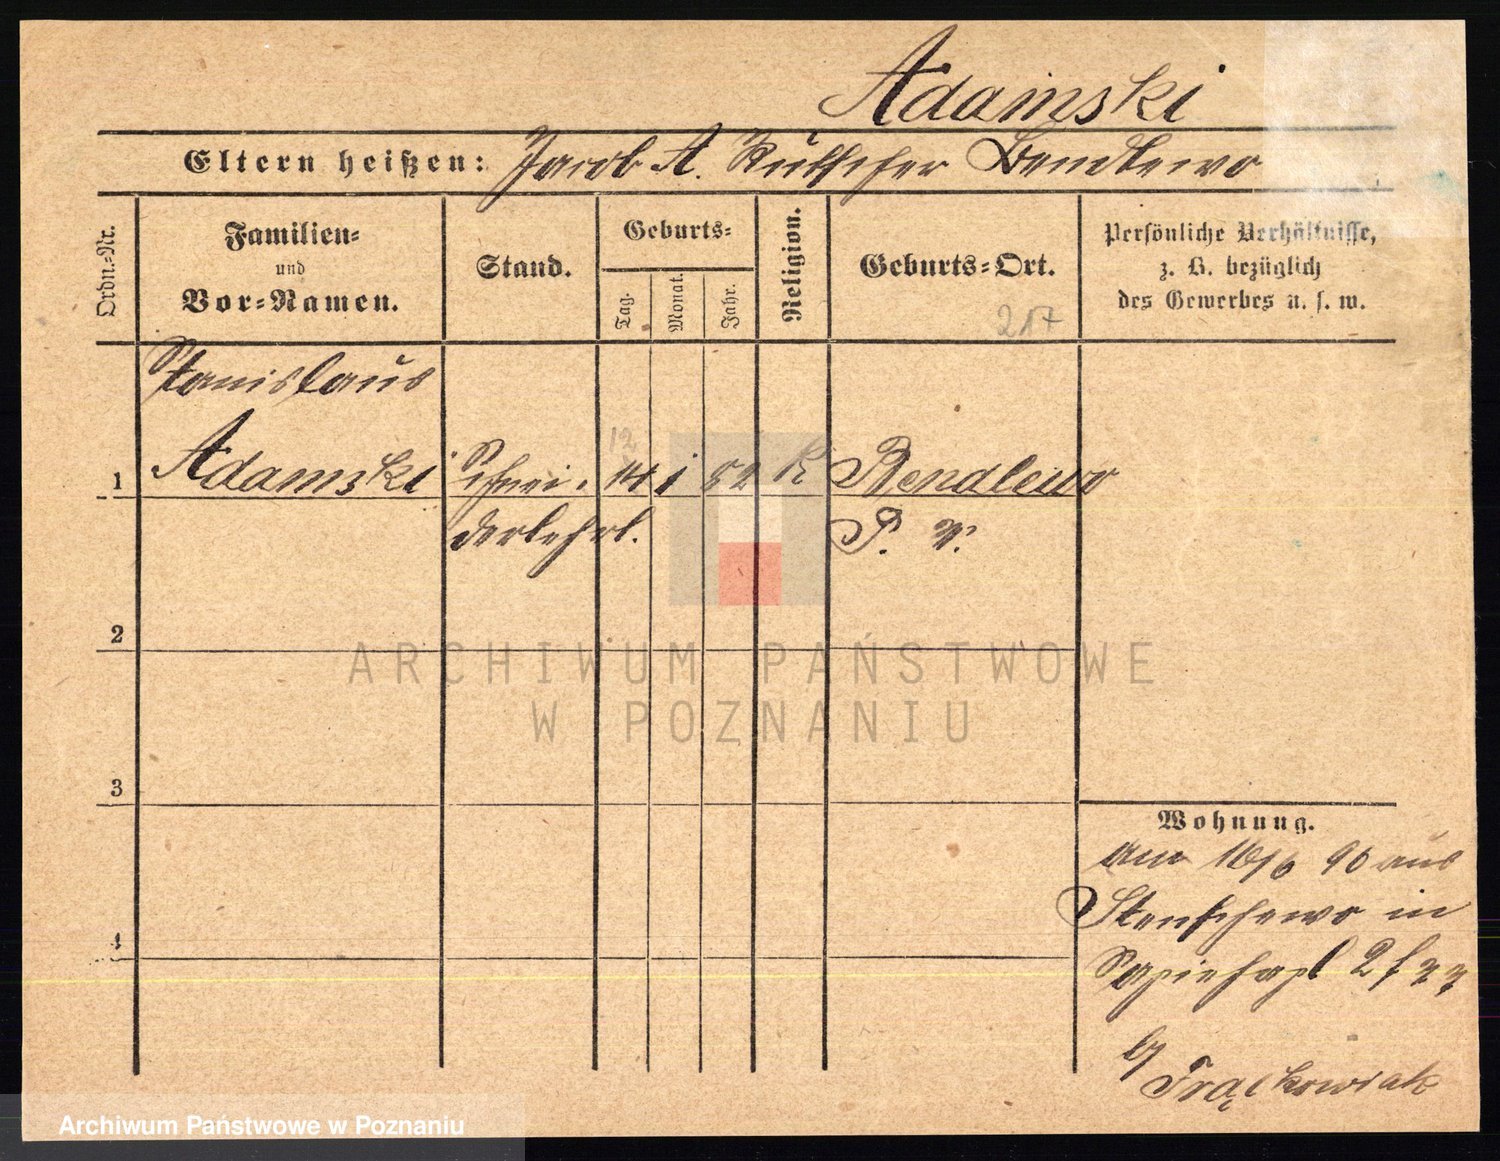 Adamski
Eltern heißen: Jacob A. Kutscher Bendlewo
Ordn.-Nr.
Familien-
und
Vor-Namen.
Stand.
Geburts-
Tag.
Monat.
Jahr.
Religion.
Geburts-Ort.
217
Persönliche Verhältnisse,
z. B. bezüglich
des Gewerbes u. s. w.
Stanislaus
12
1 Adamski Schnei- 14 1 K Bendlewo
derlehrl. P. W.
2
3
4
Wohnung.
am 16/6 90 aus
Stenschewo in
Sapiehapl 2
b/
Frąckowiak
ARCHIWUM PAŃSTWOWE
W POZNANIU
Archiwum Państwowe w Poznaniu